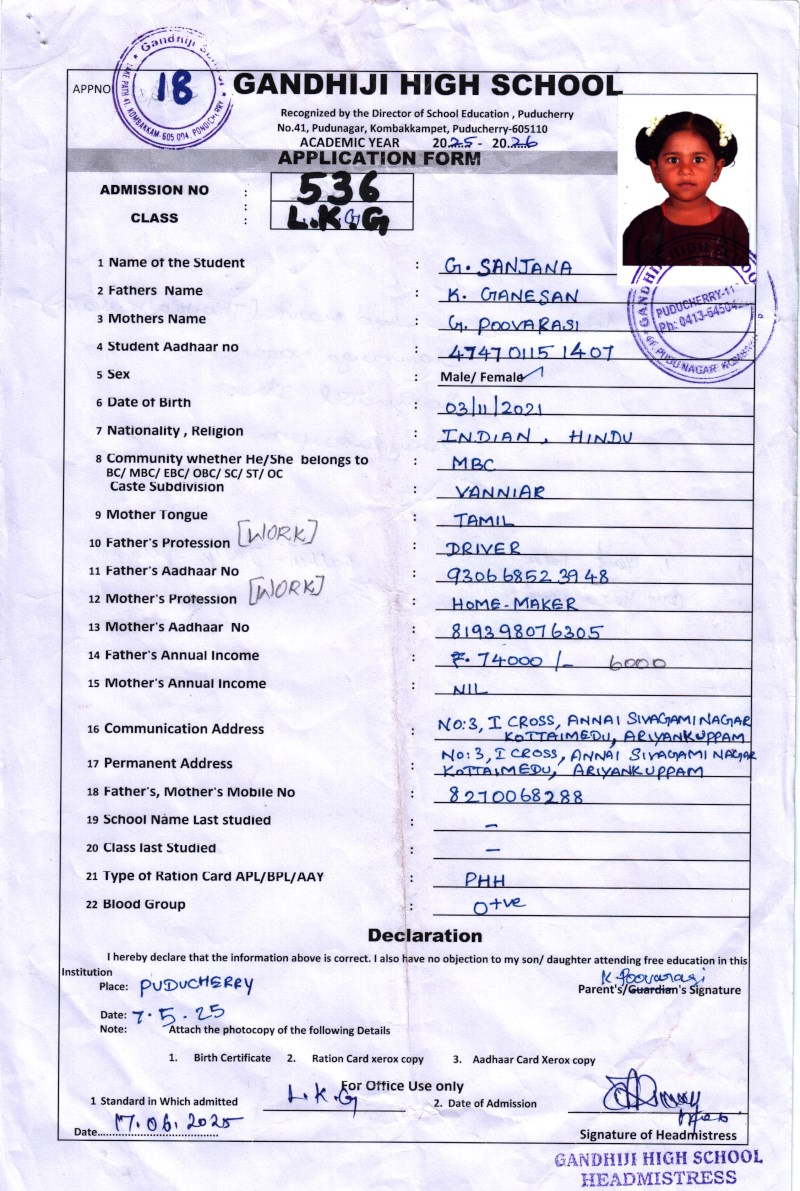 Gandhiji
APPNO 18 GANDHIJI HIGH SCHOOL
LAKE PATH 41, KOMBAKKAM-605 004, PONDICHERRY
Recognized by the Director of School Education , Puducherry
No.41, Pudunagar, Kombakkampet, Puducherry-605110
ACADEMIC YEAR 2025- 2026
APPLICATION FORM
ADMISSION NO : 536
CLASS : L.K.G
GANDHIJI HIGH SCHOOL
PUDUCHERRY-11
Ph: 0413-
PUDUNAGAR
1 Name of the Student : G. SANJANA
2 Fathers Name : K. GANESAN
3 Mothers Name : G. POOVARASI
4 Student Aadhaar no : 4747 0115 1407
5 Sex : Male/ Female ✓
6 Date of Birth : 03/11/2021
7 Nationality , Religion : INDIAN , HINDU
8 Community whether He/She belongs to : MBC
BC/ MBC/ EBC/ OBC/ SC/ ST/ OC
Caste Subdivision : VANNIAR
9 Mother Tongue : TAMIL
10 Father's Profession [WORK] : DRIVER
11 Father's Aadhaar No : 9306 6852 3948
12 Mother's Profession [WORK] : HOME-MAKER
13 Mother's Aadhaar No : 819398076305
14 Father's Annual Income : ₹. 74000 /- 6000
15 Mother's Annual Income : NIL
16 Communication Address : NO:3, I CROSS, ANNAI SIVAGAMI NAGAR
KOTTAIMEDU, ARIYANKUPPAM
17 Permanent Address : NO:3, I CROSS, ANNAI SIVAGAMI NAGAR
KOTTAIMEDU, ARIYANKUPPAM
18 Father's, Mother's Mobile No : 8270068288
19 School Name Last studied : –
20 Class last Studied : –
21 Type of Ration Card APL/BPL/AAY : PHH
22 Blood Group : O+ve
Declaration
I hereby declare that the information above is correct. I also have no objection to my son/ daughter attending free education in this
Institution
K. Poovarasi
Place: PUDUCHERRY
Parent's/Guardian's Signature
Date: 7.5.25
Note: Attach the photocopy of the following Details
1. Birth Certificate 2. Ration Card xerox copy 3. Aadhaar Card Xerox copy
For Office Use only
1 Standard in Which admitted L.K.G 2. Date of Admission
Date 17.06.2025
Signature of Headmistress
GANDHIJI HIGH SCHOOL
HEADMISTRESS